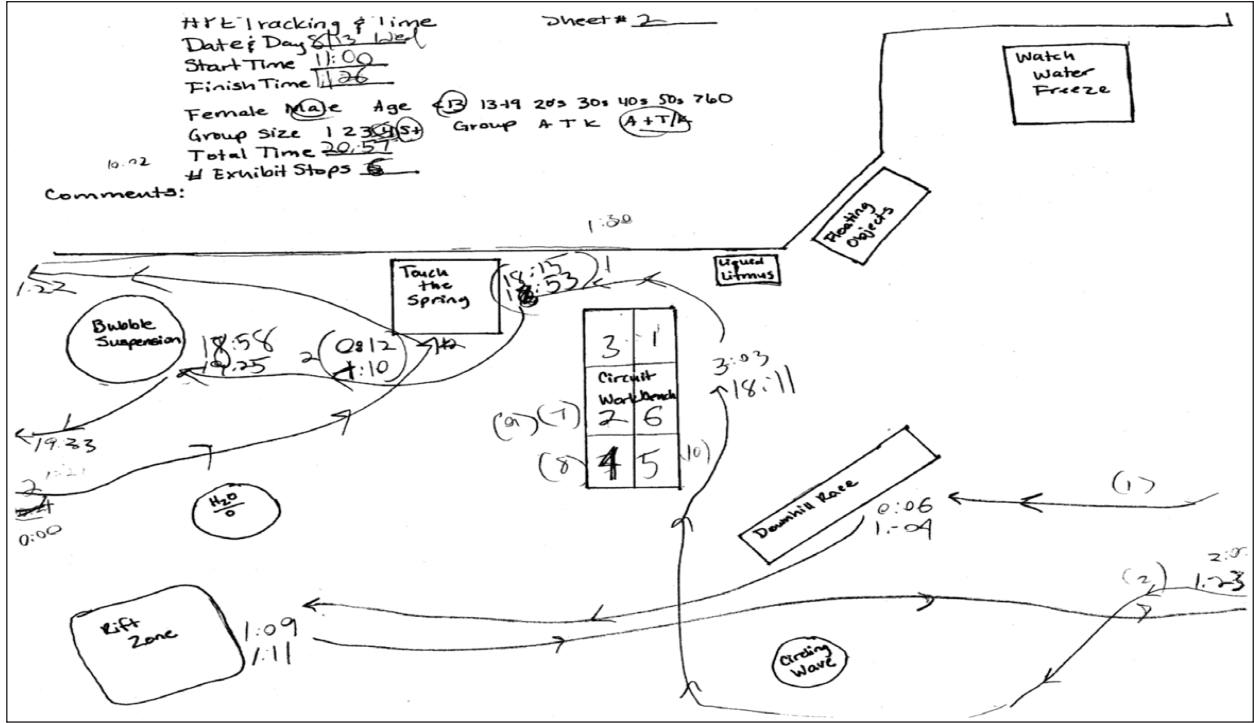 HPE Tracking & Time
Sheet # 2
Date & Day 8/13 Wed
Start Time 11:00
Finish Time 11:26
Female Male Age <13 13-19 20s 30s 40s 50s >60
Group Size 1 2 3 4 5+ Group A T K A+T/K
Total Time 20:57
# Exhibit Stops
Comments:
Watch
Water
Freeze
Floating
Objects
1:30
Liquid
Litmus
Touch
the
Spring
18:15
18:53
1
1:22
Bubble
Suspension
18:58
19:25
2
0:12
1:10
3 1
Circuit
Workbench
2 6
4 5
(9) (7)
(8)
(10)
3:03
18:11
19:33
1:21
2
0:00
H2O
Downhill Race
0:06
1:04
(1)
(2)
1:23
Rift
Zone
1:09
1:11
Circling
Wave